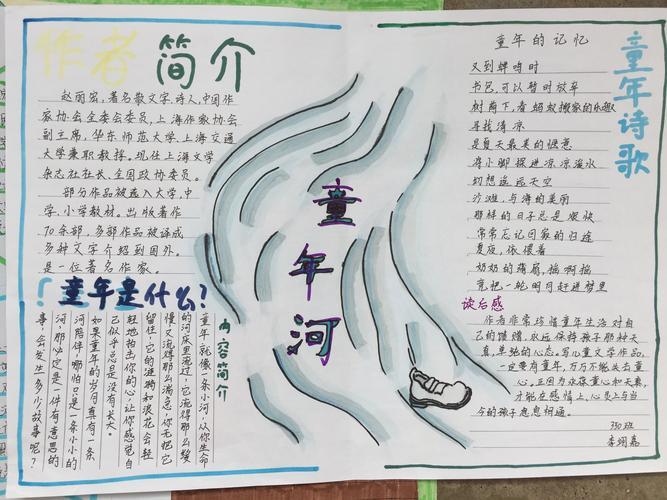 作者简介
赵丽宏,著名散文字,诗人,中国作
家协会全委会委员,上海作家协会
副主席,华东师范大学、上海交通
大学兼职教授,现任上海文学
杂志社社长、全国政协委员。
部分作品被选入大学,中
学,小学教材。出版著作
70余部,多部作品被译成
多种文字介绍到国外。
是一位著名作家。
童年是什么?
内容简介
童年就像一条小河,从你生命
的河床里流过,它流得那么缓
慢又流得那么湍急,你无把它
留住,它的涟漪和浪花会轻
轻地拍击你的心,让你感觉自
己似乎总是没有长大。
如果童年的岁月真有一条
河陪伴,哪怕只是一条小小的
河,那必定是一件有意思的
事,会发生多少故事呢?
童年河
童年诗歌
童年的记忆
又到蝉鸣时
书包,可以暂时放弃
树荫下,看蚂蚁搬家的乐趣
寻找清凉
是夏天最美的惬意
将小脚探进凉凉溪水
幻想遥远天空
沙滩,与海的美丽
那样的日子总是爽快
常常忘记回家的归途
夏夜,依偎着
奶奶的蒲扇,摇啊摇
竟把一轮明月赶进梦里
读后感
作者非常珍惜童年生活对自
己的馈赠,永远保持孩子那种天
真,单纯的心态。写儿童文学作品,
一定要有童年,万万不能失去童
心,正因为众保童心和天真,
才能在感情上,心灵上与当
今的孩子息息相通。
330班
李翊嘉